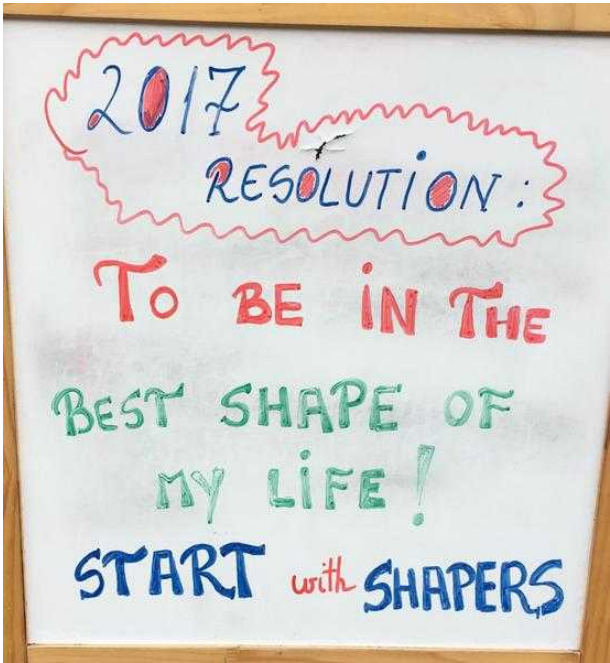 2017
RESOLUTION:
TO BE IN THE
BEST SHAPE OF
MY LIFE!
START with SHAPERS